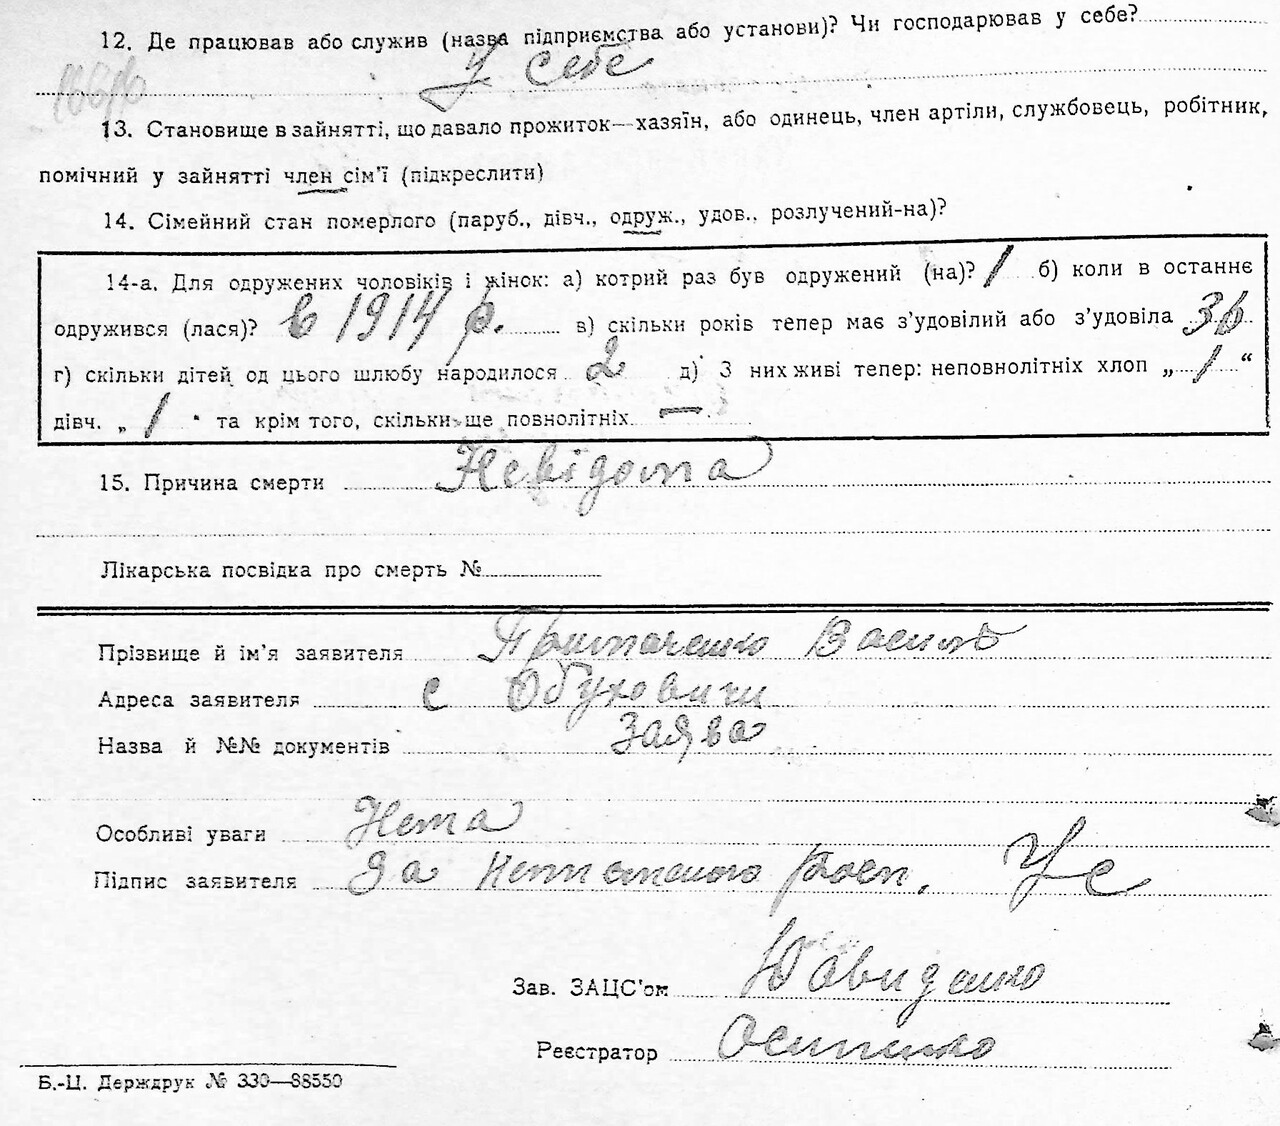 12. Де працював або служив (назва підприємства або установи)? Чи господарював у себе?
у себе
13. Становище в зайнятті, що давало прожиток—хазяїн, або одинець, член артіли, службовець, робітник,
помічний у зайнятті член сім'ї (підкреслити)
14. Сімейний стан померлого (паруб., дівч., одруж., удов., розлучений-на)?
14-а. Для одружених чоловіків і жінок: а) котрий раз був одружений (на)? 1 б) коли в останнє
одружився (лася)? в 1914 р. в) скільки років тепер має з'удовілий або з'удовіла 36
г) скільки дітей од цього шлюбу народилося 2 д) З них живі тепер: неповнолітніх хлоп „ 1 “
дівч. „ 1 " та крім того, скільки ще повнолітніх —
15. Причина смерти Невідома
Лікарська посвідка про смерть №
Прізвище й ім'я заявителя Василь
Адреса заявителя с Обуховичи
Назва й №№ документів Заява
Особливі уваги Нема
Підпис заявителя За неписменого
Зав. ЗАЦС'ом
Реєстратор Осипенко
Б.-Ц. Держдрук № 330—88550